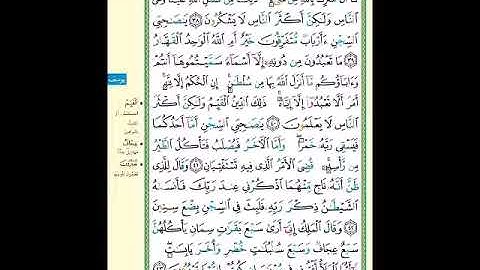 النَّاسِ وَلَٰكِنَّ أَكْثَرَ النَّاسِ لَا يَشْكُرُونَ ٣٨ يَٰصَٰحِبَيِ
السِّجْنِ ءَأَرْبَابٌ مُّتَفَرِّقُونَ خَيْرٌ أَمِ اللَّهُ الْوَٰحِدُ الْقَهَّارُ
٣٩ مَا تَعْبُدُونَ مِن دُونِهِۦٓ إِلَّآ أَسْمَآءً سَمَّيْتُمُوهَآ أَنتُمْ
وَءَابَآؤُكُم مَّآ أَنزَلَ اللَّهُ بِهَا مِن سُلْطَٰنٍ ۚ إِنِ الْحُكْمُ إِلَّا لِلَّهِ ۚ
أَمَرَ أَلَّا تَعْبُدُوٓا۟ إِلَّآ إِيَّاهُ ۚ ذَٰلِكَ الدِّينُ الْقَيِّمُ وَلَٰكِنَّ أَكْثَرَ
النَّاسِ لَا يَعْلَمُونَ ٤٠ يَٰصَٰحِبَيِ السِّجْنِ أَمَّآ أَحَدُكُمَا
فَيَسْقِى رَبَّهُۥ خَمْرًا ۖ وَأَمَّا الْءَاخَرُ فَيُصْلَبُ فَتَأْكُلُ الطَّيْرُ
مِن رَّأْسِهِۦ ۚ قُضِىَ الْأَمْرُ الَّذِى فِيهِ تَسْتَفْتِيَانِ ٤١ وَقَالَ لِلَّذِى
ظَنَّ أَنَّهُۥ نَاجٍ مِّنْهُمَا اذْكُرْنِى عِندَ رَبِّكَ فَأَنسَىٰهُ
الشَّيْطَٰنُ ذِكْرَ رَبِّهِۦ فَلَبِثَ فِى السِّجْنِ بِضْعَ سِنِينَ
٤٢ وَقَالَ الْمَلِكُ إِنِّىٓ أَرَىٰ سَبْعَ بَقَرَٰتٍ سِمَانٍ يَأْكُلُهُنَّ
سَبْعٌ عِجَافٌ وَسَبْعَ سُنۢبُلَٰتٍ خُضْرٍ وَأُخَرَ يَابِسَٰتٍ ۖ